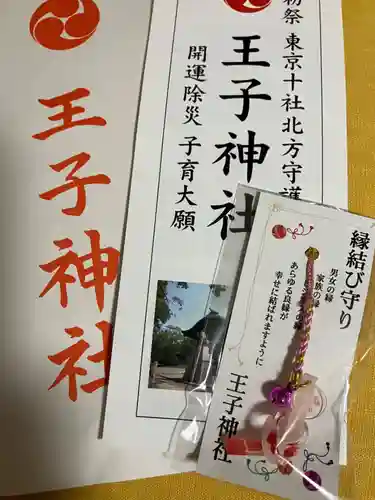 王子神社
東京十社北方守護
王子神社
開運除災 子育大願
縁結び守り
男女の縁
家族の縁
あらゆる良縁が
幸せに結ばれますように
王子神社